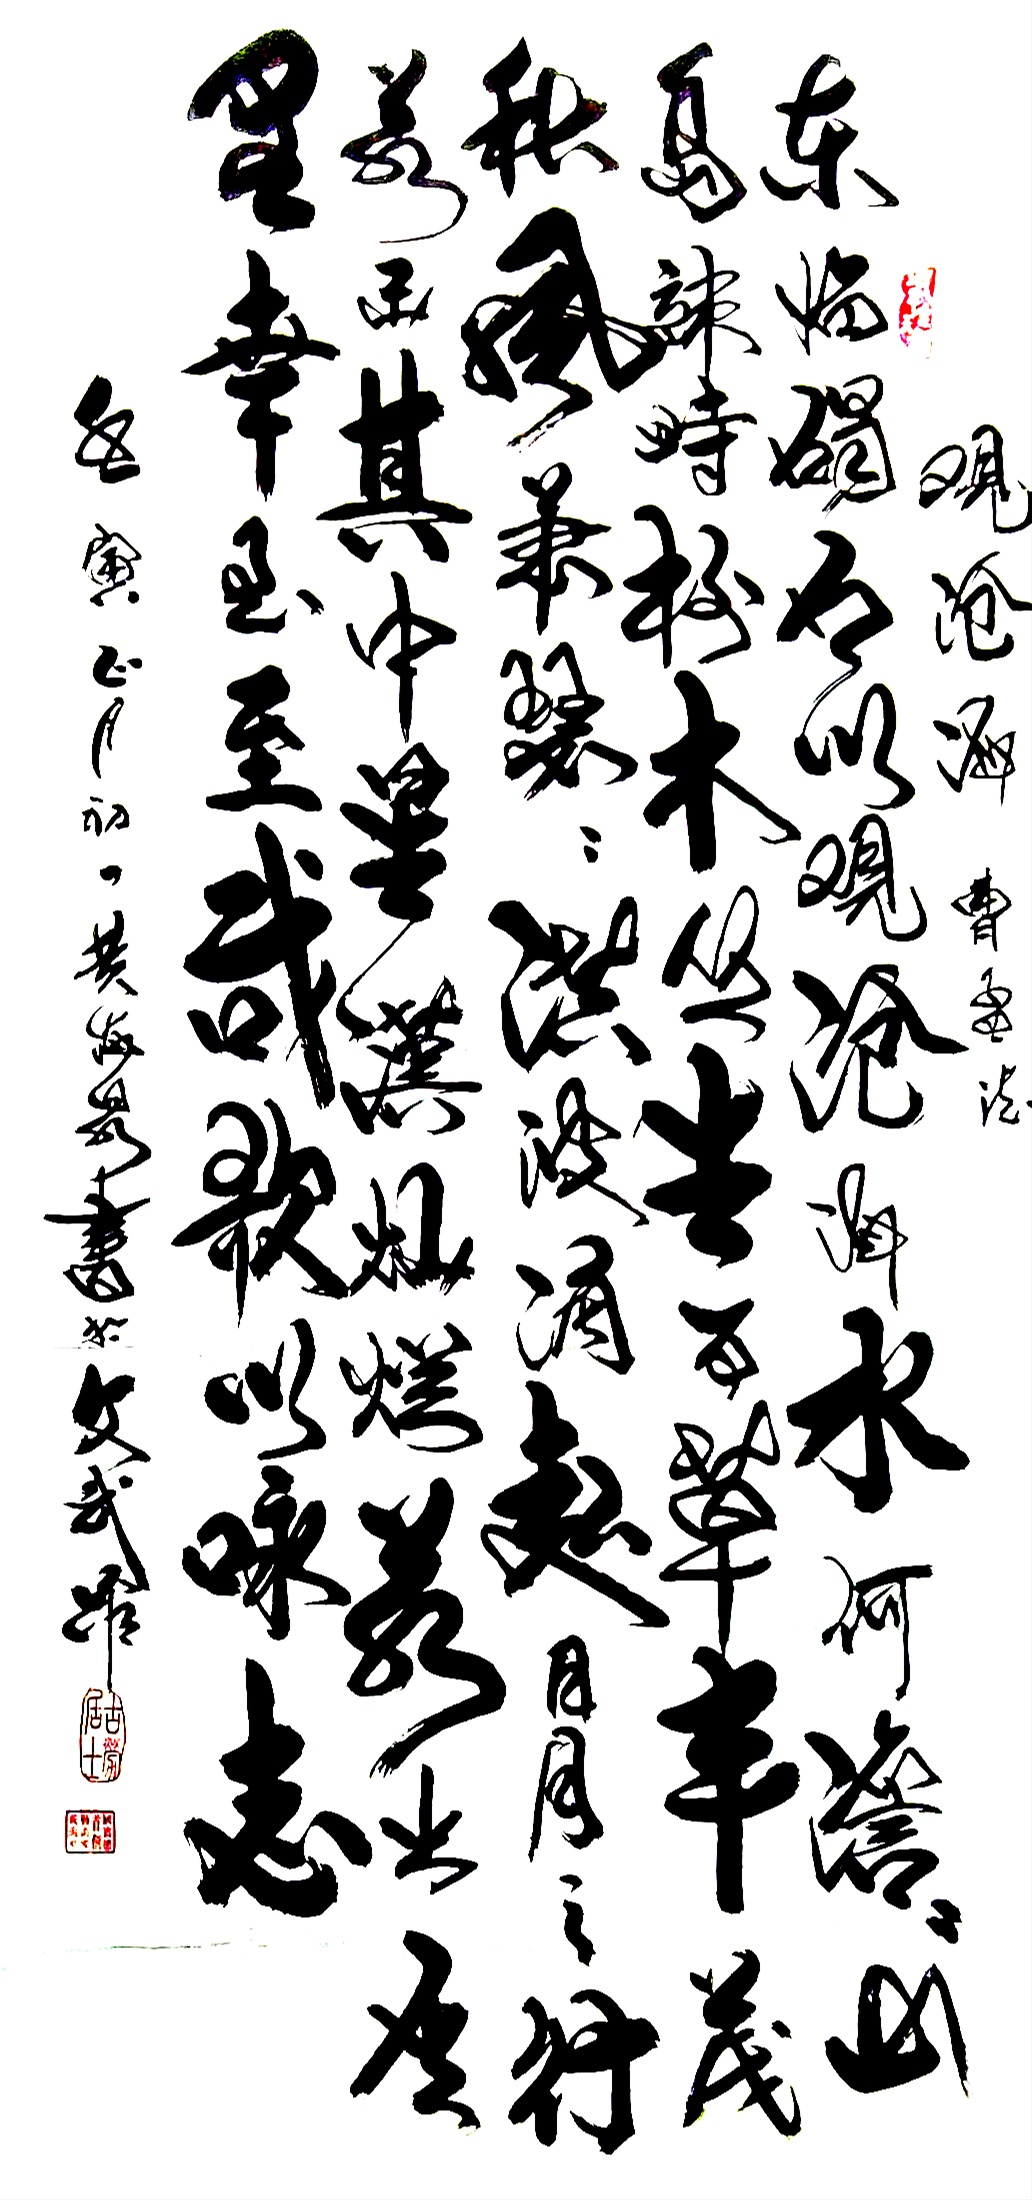 观沧海 曹孟德
东临碣石以观沧海水何澹〻山
岛竦峙树木丛生百草丰茂
秋风萧瑟〻洪波涌起日月之行
若出其中星汉灿烂若出其
里幸甚至哉歌以咏志
寅正月初一黄海泉书于文武